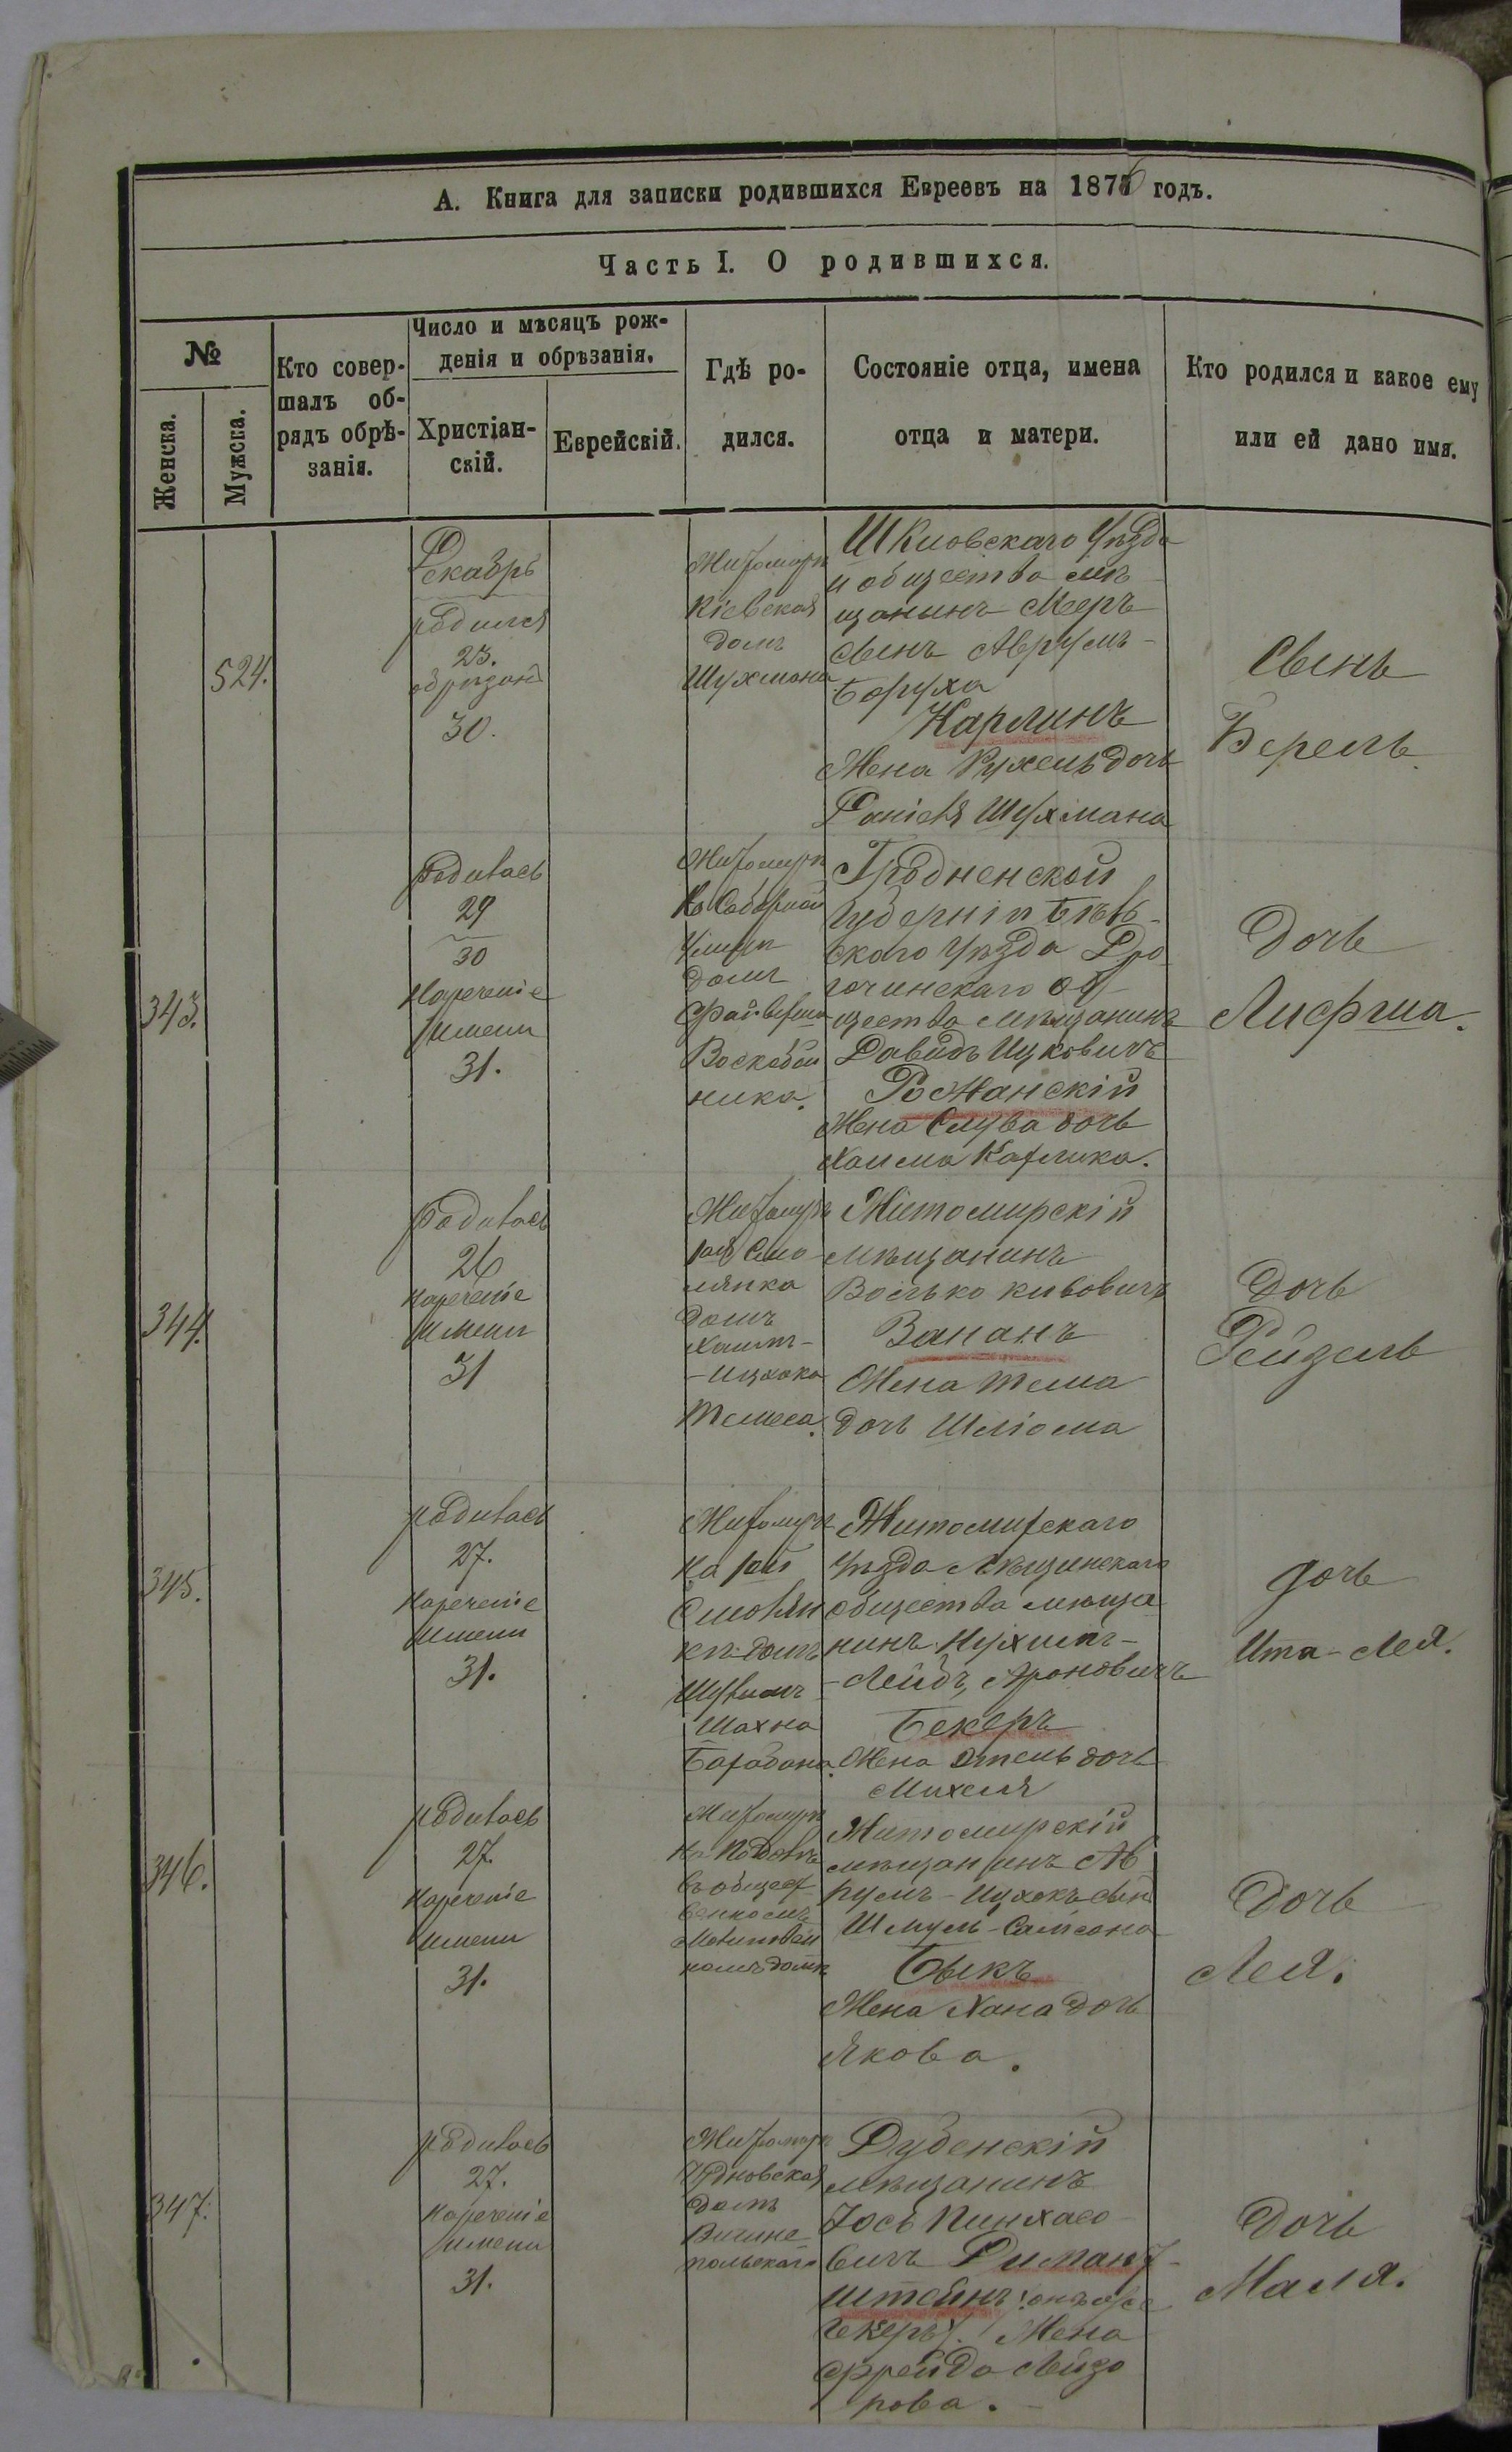 А. Книга для записки родившихся Евреевъ на 1876 годъ.
Часть I. О родившихся.
№
Женска.
Мужска.
Кто совер-
шалъ об-
рядъ обрѣ-
занія.
Число и мѣсяцъ рож-
денія и обрѣзанія.
Христіан-
скій.
Еврейскій.
Гдѣ ро-
дился.
Состояніе отца, имена
отца и матери.
Кто родился и какое ему
или ей дано имя.
524.
Декабрь
родился
23.
обрѣзанъ
30.
Житомиръ
Кіевская
домъ
Шухмана
Шкловскаго Уѣзда
и общества мѣ
щанинъ Мееръ
сынъ Аврумъ-
Боруха
Карлинъ
Жена Рухель дочь
Даніеля Шухмана
Сынъ
Берель.
343.
Родилась
29
30
Нареченіе
имени
31.
Житомиръ
по Соборной
Улицѣ
домъ
Файвеша
Воскобой
ника.
Гродненской
Губерніи Бѣль-
скаго Уѣзда Дро
гочинскаго об-
щества мѣщанинъ
Давидъ Ицковичъ
Рожанскій
Жена Слува дочь
Хаима Карлика.
Дочь
Лифша.
344.
Родилась
26
Нареченіе
имени
31
Житомиръ
Смо
лянка
домъ
Хаимъ-
-Ицхока
Темеса.
Житомирскій
мѣщанинъ
Волько Кивовичъ
Вананъ
Жена Тема
дочь Шліома
Дочь
Рейзель
345.
Родилась
27.
Нареченіе
имени
31.
Житомиръ
на
Смолян
кѣ домъ
Шулимъ
Шахна
Барабана.
Житомирскаго
Уѣзда
общества мѣща
нинъ Нухимъ-
-Лейбъ Ароновичъ
Бекеръ
Жена Этель дочь
Михеля
Дочь
Ита-Лея.
346.
Родилась
27.
Нареченіе
имени
31.
Житомиръ
на Подолѣ
въ общест
венномъ
Молитвен
номъ домѣ
Житомирскій
мѣщанинъ Ав
румъ-Ицхокъ сынъ
Шмуль-Самсона
Быкъ
Жена Хана дочь
Якова.
Дочь
Лея.
347.
Родилась
27.
Нареченіе
имени
31.
Житомиръ
Чудновская
домъ
Вигине
польскаго
Дубенскій
мѣщанинъ
Іось Пинхасо
вичъ Димант-
штейнъ (онъ же
Бекеръ). Жена
Фрейда Лейзо
рова.
Дочь
Маля.